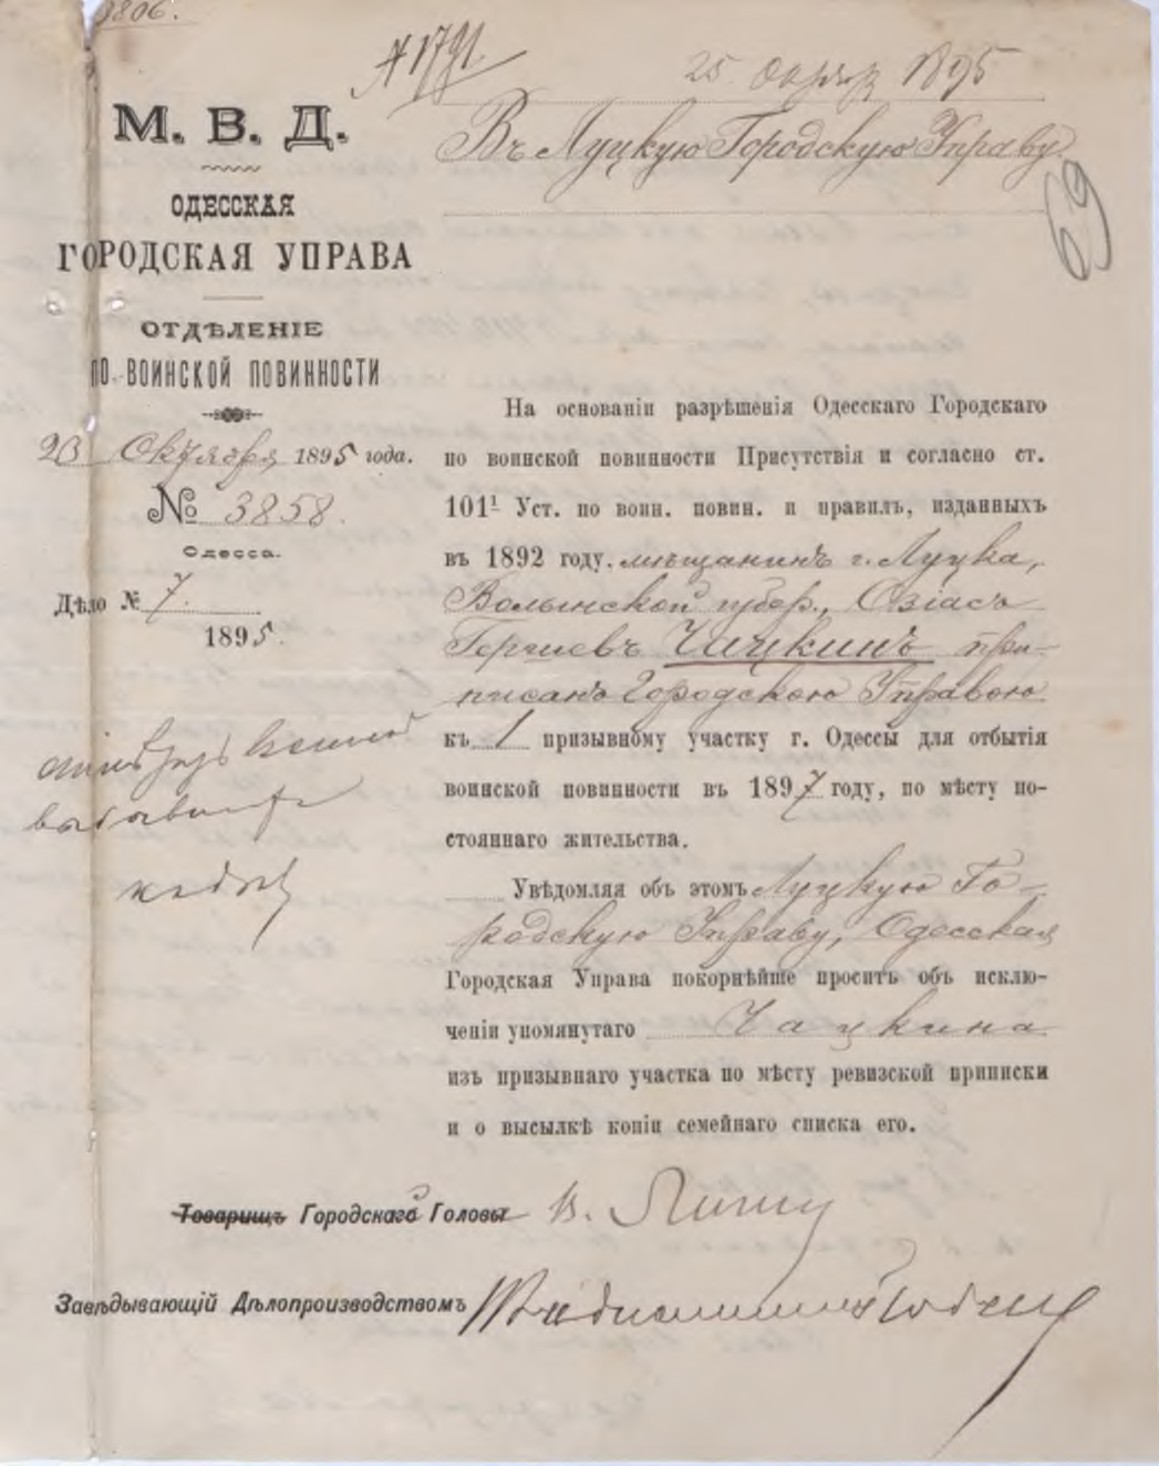 3806.
№ 1791
25 октяб 1895
Въ Луцкую Городскую Управу.
69
М. В. Д.
ОДЕССКАЯ
ГОРОДСКАЯ УПРАВА
ОТДѢЛЕНІЕ
ПО ВОИНСКОЙ ПОВИННОСТИ
23 Октября 1895 года.
№ 3858.
Одесса.
Дѣло № 7.
1895.
На основаніи разрѣшенія Одесскаго Городскаго
по воинской повинности Присутствія и согласно ст.
101¹ Уст. по воин. повин. и правилъ, изданныхъ
въ 1892 году, мѣщанинъ г. Луцка,
Волынской губер., Озіасъ
Гершевъ Чацкинъ при-
писанъ Городскою Управою
къ 1 призывному участку г. Одессы для отбытія
воинской повинности въ 1897 году, по мѣсту по-
стояннаго жительства.
Увѣдомляя объ этомъ Луцкую Го-
родскую Управу, Одесская
Городская Управа покорнѣйше проситъ объ исклю-
ченіи упомянутаго Чацкина
изъ призывнаго участка по мѣсту ревизской приписки
и о высылкѣ копіи семейнаго списка его.
Товарищъ Городскаго Головы В. Лигин
Завѣдывающій Дѣлопроизводствомъ